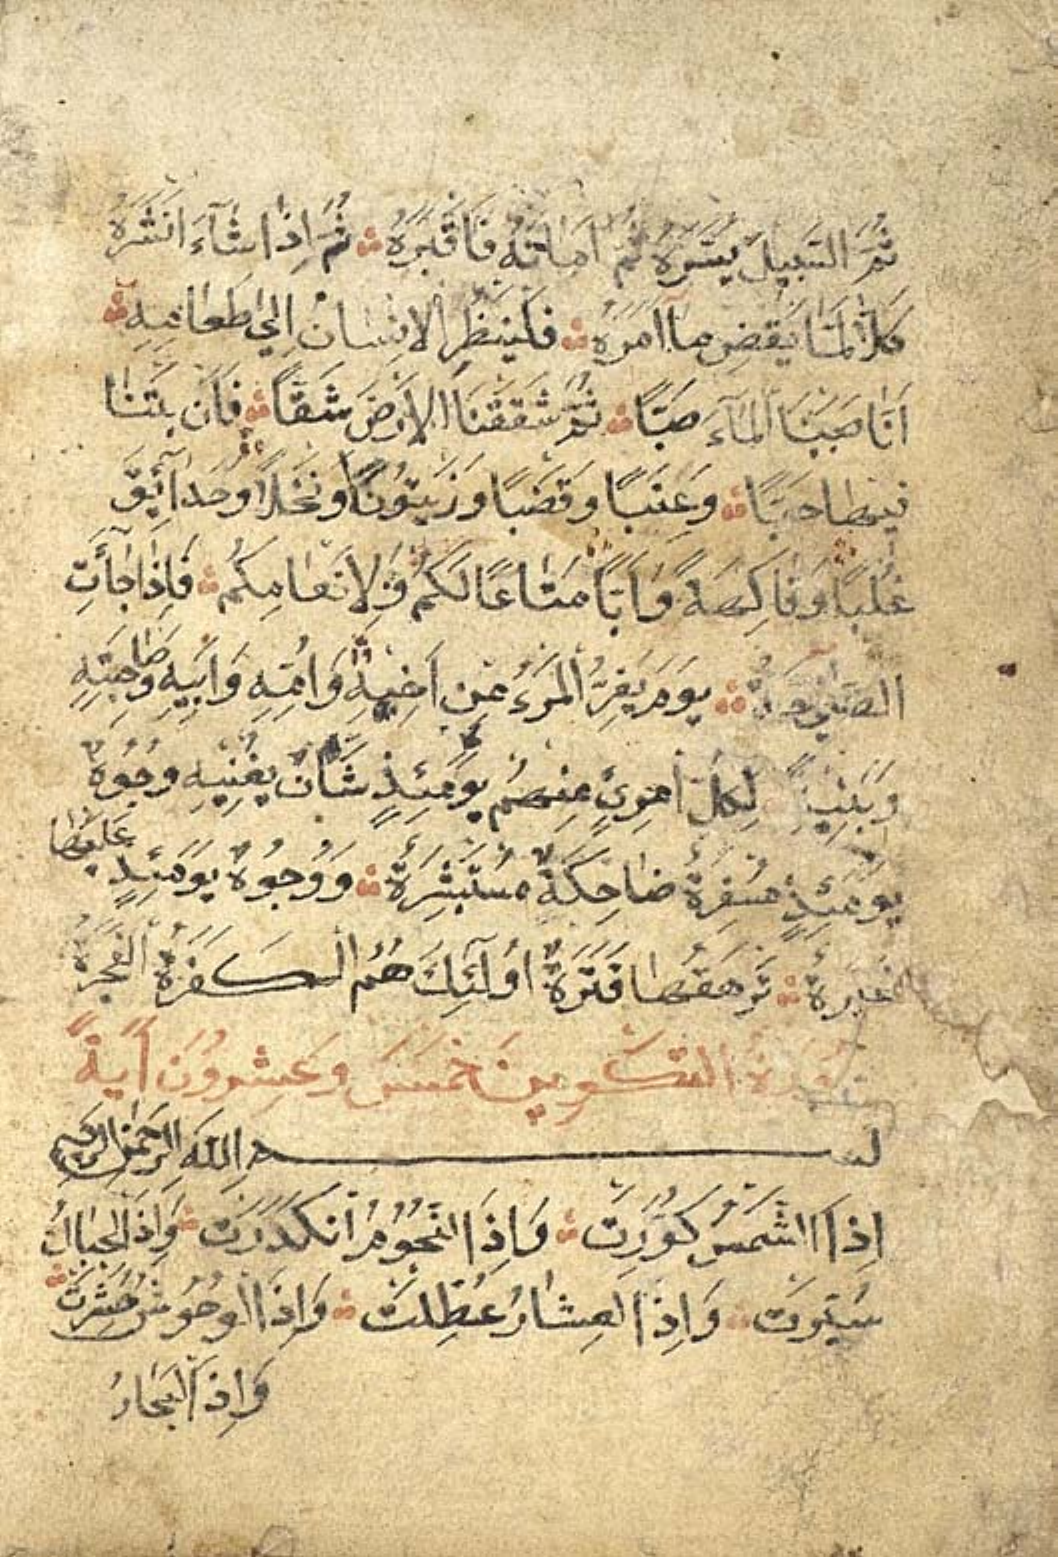 ثُمَّ السَّبِيلَ يَسَّرَهُ ثُمَّ اَمَاتَهُ فَاَقْبَرَهُ ثُمَّ اِذَا شَآءَ اَنْشَرَهُ
كَلَّا لَمَّا يَقْضِ مَآ اَمَرَهُ فَلْيَنْظُرِ الْاِنْسَانُ اِلٰى طَعَامِهِ
اَنَّا صَبَبْنَا الْمَآءَ صَبًّا ثُمَّ شَقَقْنَا الْاَرْضَ شَقًّا فَاَنْبَتْنَا
فِيهَا حَبًّا وَعِنَبًا وَقَضْبًا وَزَيْتُونًا وَنَخْلًا وَحَدَآئِقَ
غُلْبًا وَفَاكِهَةً وَاَبًّا مَتَاعًا لَكُمْ وَلِاَنْعَامِكُمْ فَاِذَا جَآءَتِ
الصَّآخَّةُ يَوْمَ يَفِرُّ الْمَرْءُ مِنْ اَخِيهِ وَاُمِّهِ وَاَبِيهِ وَصَاحِبَتِهِ
وَبَنِيهِ لِكُلِّ امْرِئٍ مِنْهُمْ يَوْمَئِذٍ شَاْنٌ يُغْنِيهِ وُجُوهٌ
يَوْمَئِذٍ مُسْفِرَةٌ ضَاحِكَةٌ مُسْتَبْشِرَةٌ وَوُجُوهٌ يَوْمَئِذٍ عَلَيْهَا
غَبَرَةٌ تَرْهَقُهَا قَتَرَةٌ اُولٰٓئِكَ هُمُ الْكَفَرَةُ الْفَجَرَةُ
سُورَةُ التَّكْوِيرِ خَمْسَ وَعِشْرُونَ اٰيَةً
بسم اللهِ الرَّحْمٰنِ الرَّحِيمِ
اِذَا الشَّمْسُ كُوِّرَتْ وَاِذَا النُّجُومُ انْكَدَرَتْ وَاِذَا الْجِبَالُ
سُيِّرَتْ وَاِذَا الْعِشَارُ عُطِّلَتْ وَاِذَا الْوُحُوشُ حُشِرَتْ
وَاِذَا الْبِحَارُ